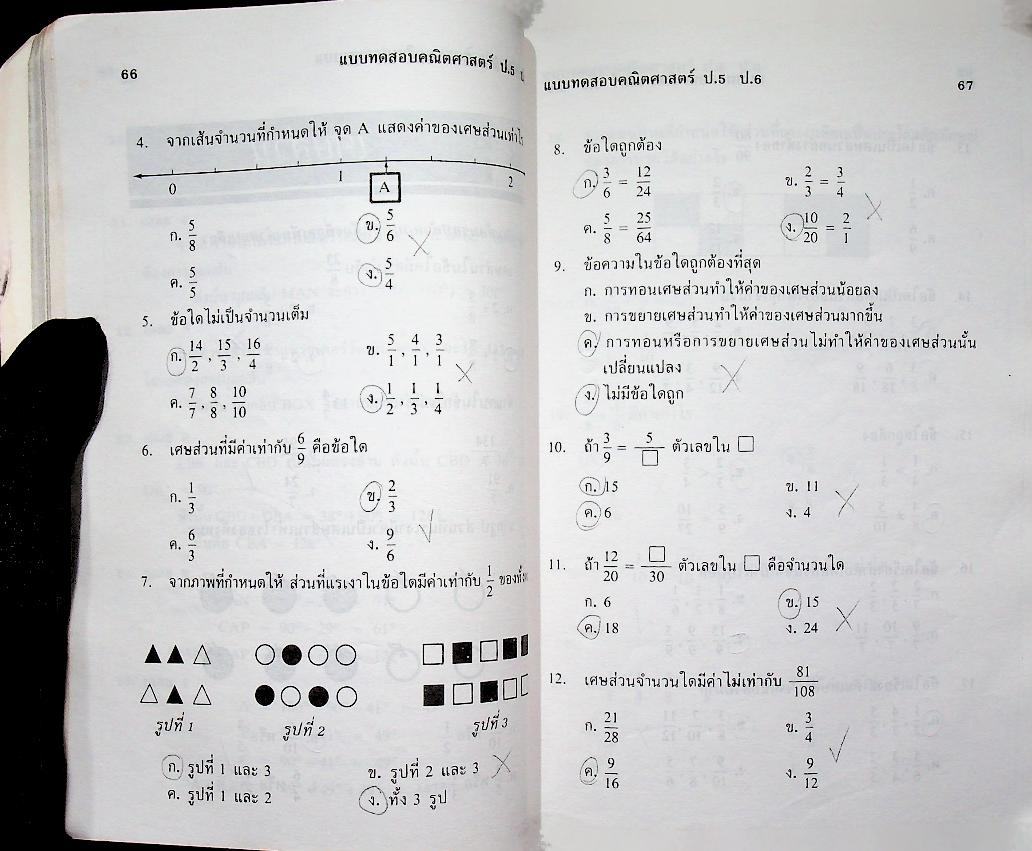 66
แบบทดสอบคณิตศาสตร์ ป.5 ป
4. จากเส้นจำนวนที่กำหนดให้ จุด A แสดงค่าของเศษส่วนเท่าไร
0 1 2
A
ก. 5/8 ข. 5/6
ค. 5/5 ง. 5/4
5. ข้อใดไม่เป็นจำนวนเต็ม
ก. 14/2 , 15/3 , 16/4 ข. 5/1 , 4/1 , 3/1
ค. 7/7 , 8/8 , 10/10 ง. 1/2 , 1/3 , 1/4
6. เศษส่วนที่มีค่าเท่ากับ 6/9 คือข้อใด
ก. 1/3 ข. 2/3
ค. 6/3 ง. 9/6
7. จากภาพที่กำหนดให้ ส่วนที่แรเงาในข้อใดมีค่าเท่ากับ 1/2 ของทั้ง
รูปที่ 1 รูปที่ 2 รูปที่ 3
ก. รูปที่ 1 และ 3 ข. รูปที่ 2 และ 3
ค. รูปที่ 1 และ 2 ง. ทั้ง 3 รูป
แบบทดสอบคณิตศาสตร์ ป.5 ป.6
67
8. ข้อใดถูกต้อง
ก. 3/6 = 12/24 ข. 2/3 = 3/4
ค. 5/8 = 25/64 ง. 10/20 = 2/1
9. ข้อความในข้อใดถูกต้องที่สุด
ก. การทอนเศษส่วนทำให้ค่าของเศษส่วนน้อยลง
ข. การขยายเศษส่วนทำให้ค่าของเศษส่วนมากขึ้น
ค. การทอนหรือการขยายเศษส่วนไม่ทำให้ค่าของเศษส่วนนั้น
เปลี่ยนแปลง
ง. ไม่มีข้อใดถูก
10. ถ้า 3/9 = 5/□ ตัวเลขใน □
ก. 15 ข. 11
ค. 6 ง. 4
11. ถ้า 12/20 = □/30 ตัวเลขใน □ คือจำนวนใด
ก. 6 ข. 15
ค. 18 ง. 24
12. เศษส่วนจำนวนใดมีค่าไม่เท่ากับ 81/108
ก. 21/28 ข. 3/4
ค. 9/16 ง. 9/12